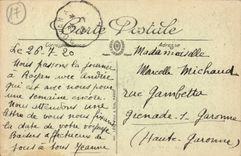 17
Carte Postale
Adresse
Le 26.7.20
Nous passons la journée
à Royan avec Andrée
qui est avec nous pour
une semaine encore.
Nous attendons une
lettre de vous nous fixant
la date de votre voyage
Baisers affectueux de
tous à tous Jeanne
Mademoiselle
Marcelle Michaud
rue Gambetta
Grenade s. Garonne
(Haute Garonne)